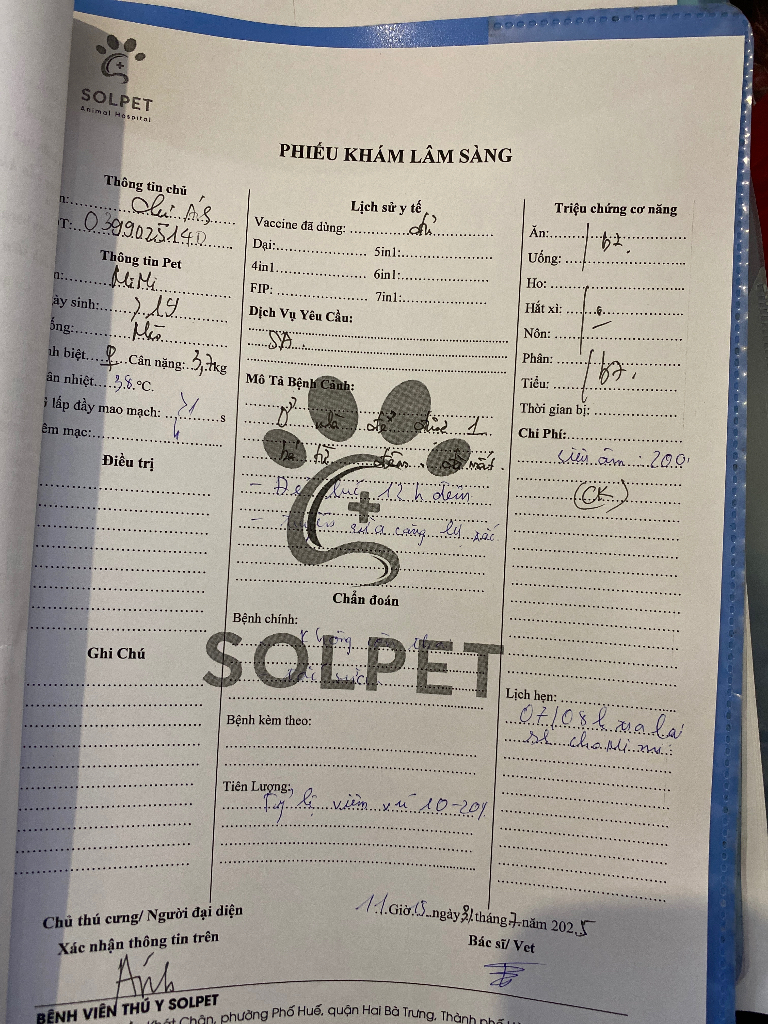 SOLPET
Animal Hospital
PHIẾU KHÁM LÂM SÀNG
Thông tin chủ
Ánh
ĐT: 0399025140
Thông tin Pet
MiMi
ày sinh: > 1Y
ống: Mèo
nh biệt ♀ Cân nặng: 3,7kg
ân nhiệt 38 °C
lấp đầy mao mạch: >1 s
êm mạc:
Điều trị
Ghi Chú
Lịch sử y tế
Vaccine đã dùng: đủ
Dại: 5in1:
4in1 6in1:
FIP: 7in1:
Dịch Vụ Yêu Cầu:
SA
Mô Tả Bệnh Cảnh:
Ở nhà đẻ được 1
bé từ đêm
- Đẻ lúc 12h đêm
sữa căng
Chẩn đoán
Bệnh chính:
Không
SOLPET
Bệnh kèm theo:
Tiên Lượng:
Tỷ lệ viêm vú 10-20%
Triệu chứng cơ năng
Ăn: bt
Uống:
Ho:
Hắt xì:
Nôn: -
Phân: bt
Tiểu:
Thời gian bị:
Chi Phí:
siêu âm: 200
(CK)
Lịch hẹn:
07/08
Chủ thú cưng/ Người đại diện
Xác nhận thông tin trên
Ánh
11 Giờ 15 ngày 31 tháng 7 năm 2025
Bác sĩ/ Vet
BỆNH VIỆN THÚ Y SOLPET
Chân, phường Phố Huế, quận Hai Bà Trưng, Thành phố